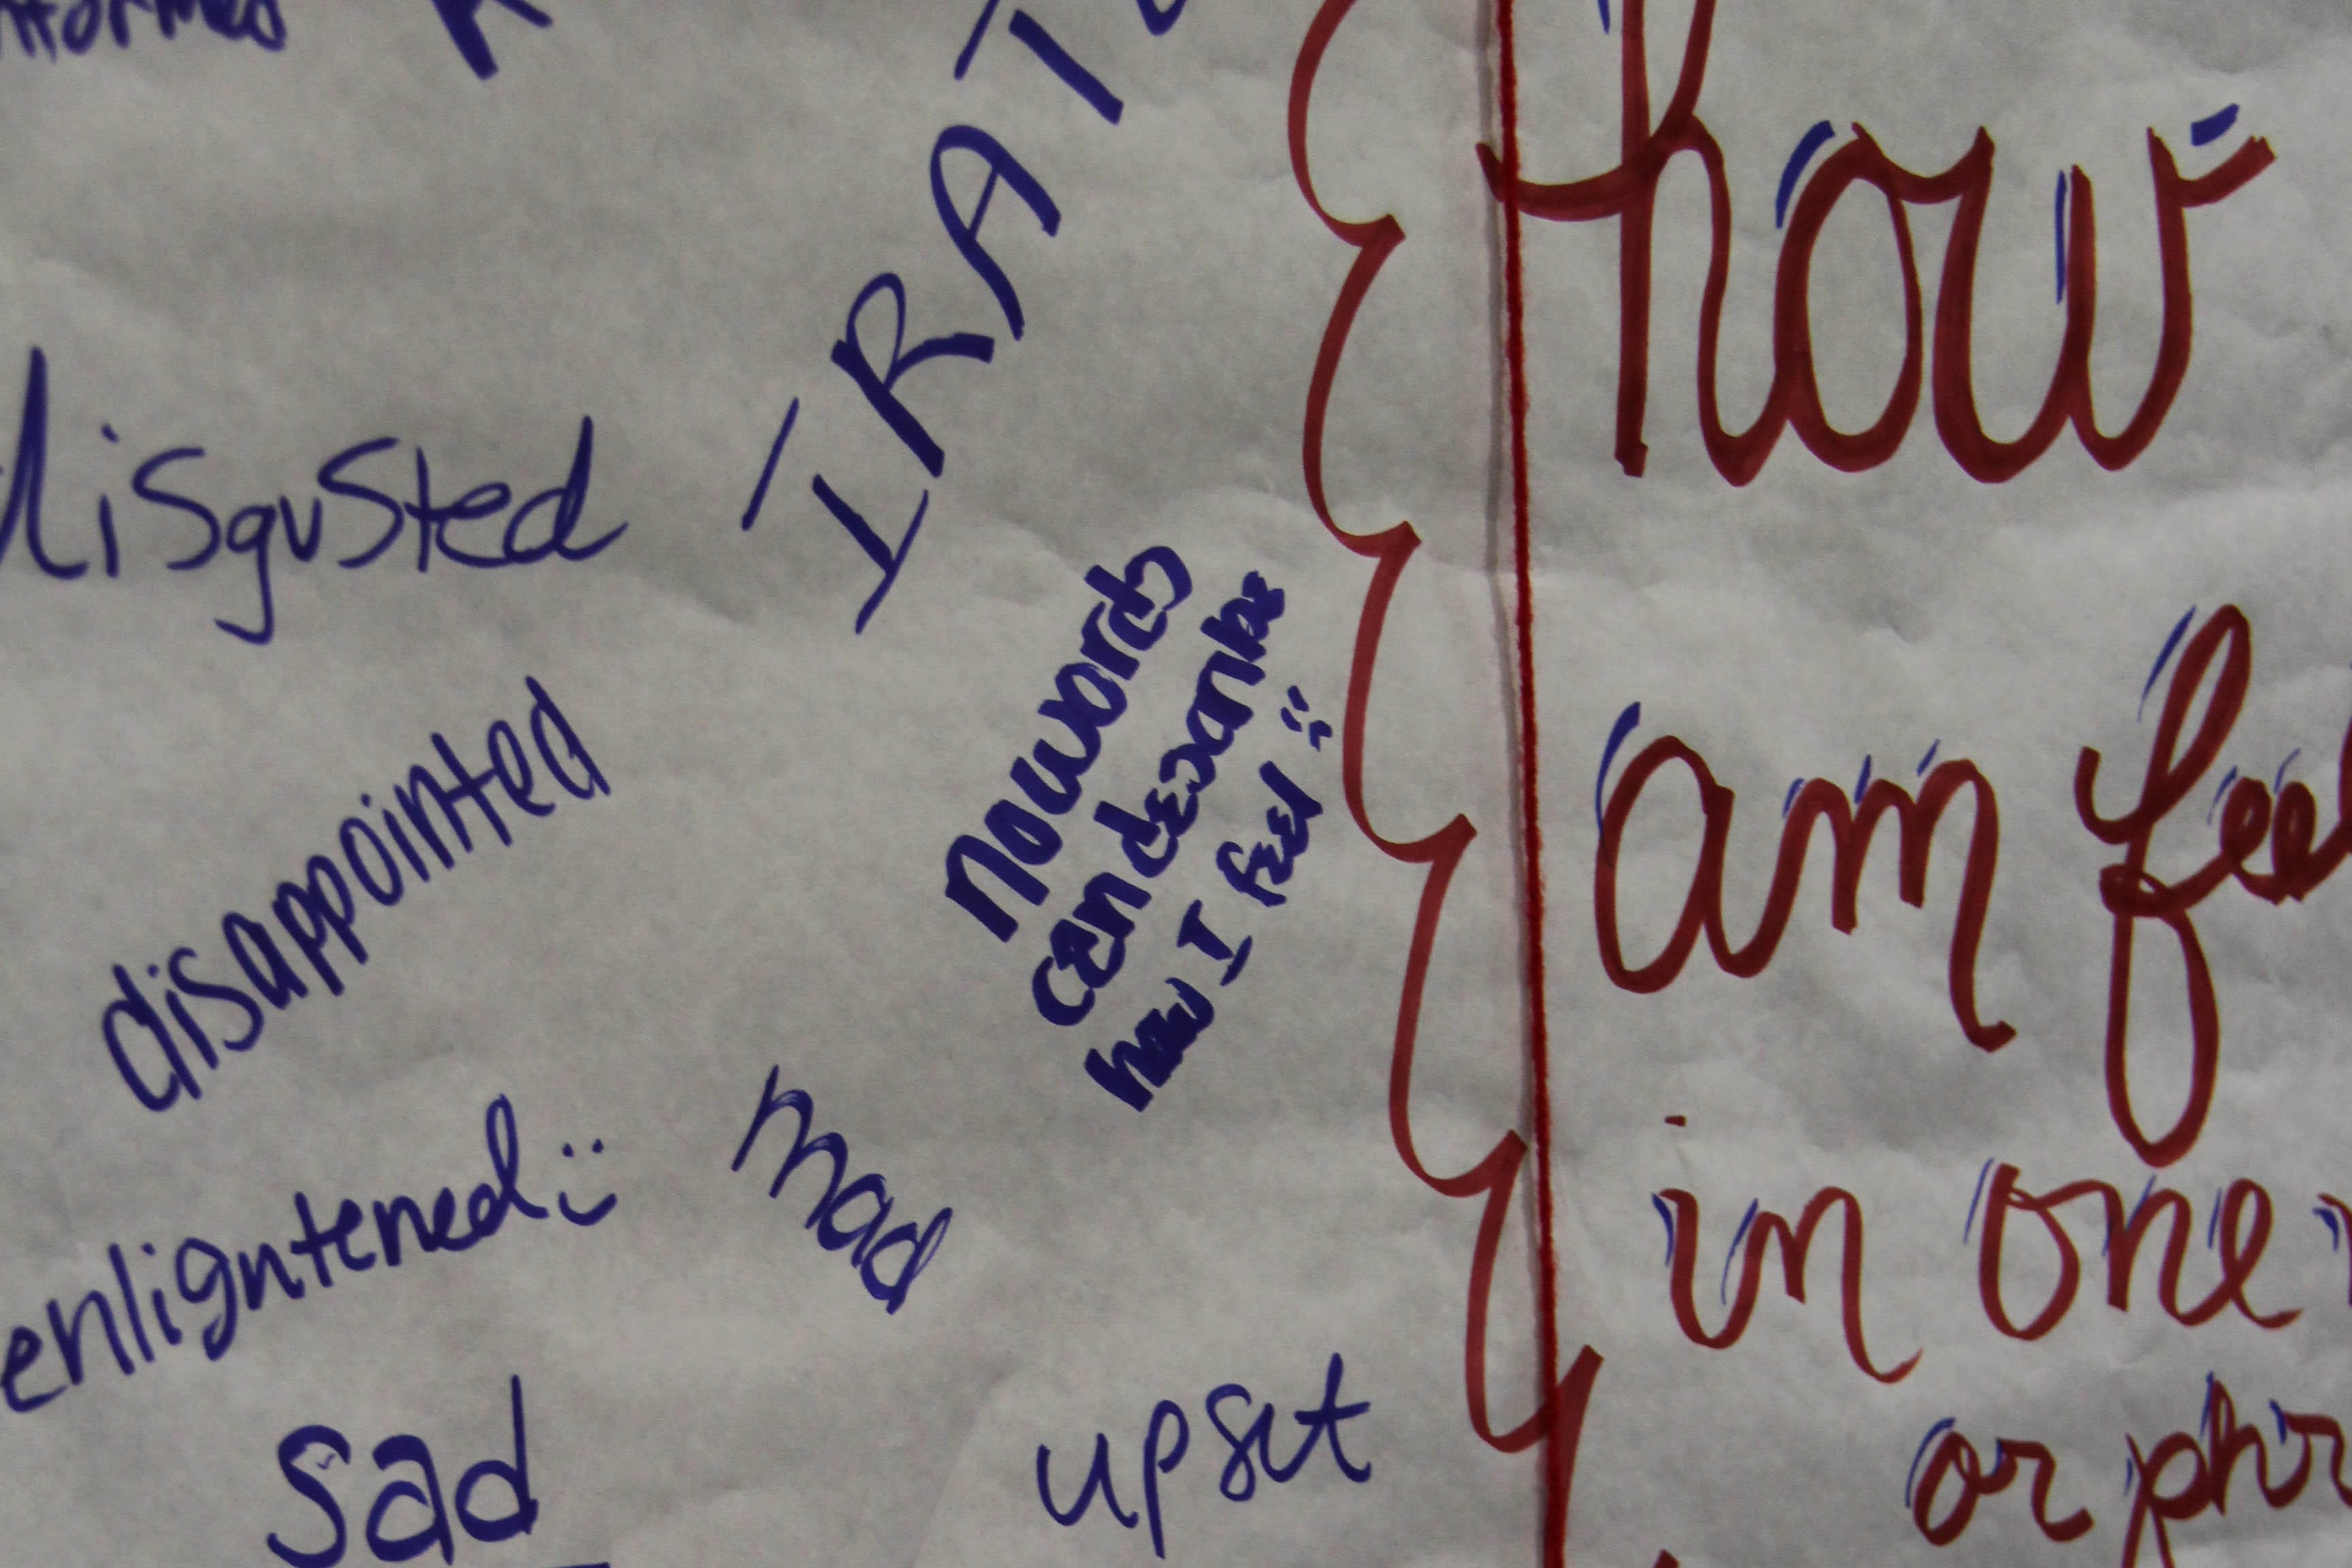 IRAT
disgusted
disappointed
no words
can describe
how I feel :(
enlightened :)
mad
sad
upset
how
am feel
in one
or phr